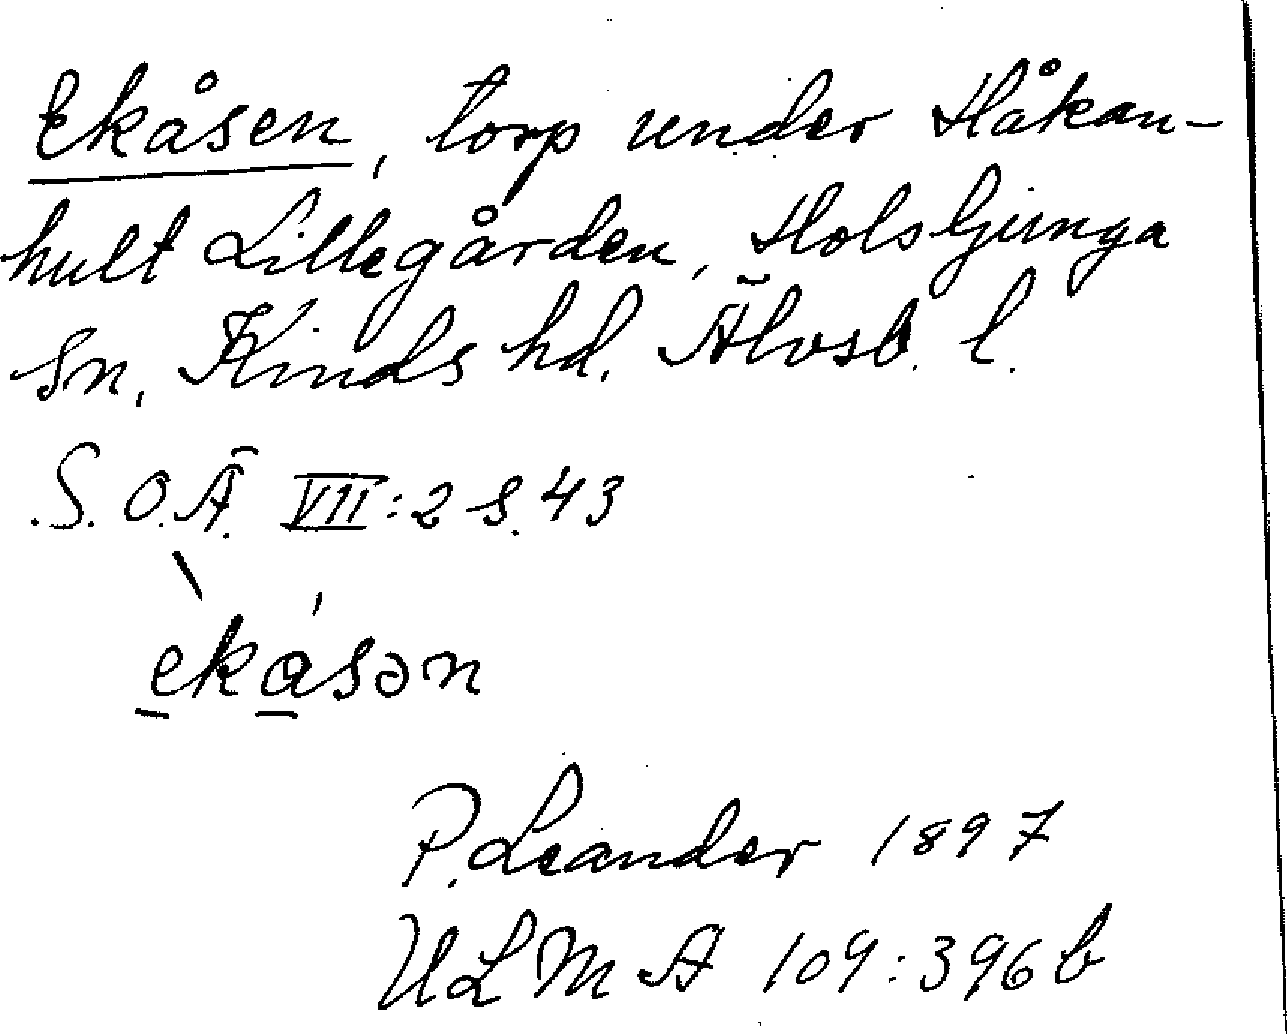 Ekåsen, torp under Håkan-
hult Lillegården, Holsljunga
sn, Kinds hd. Älvsb. l.
S.O.Ä. VII:2 s. 43
èkásən
P. Leander 1897
ULMA 109:396b